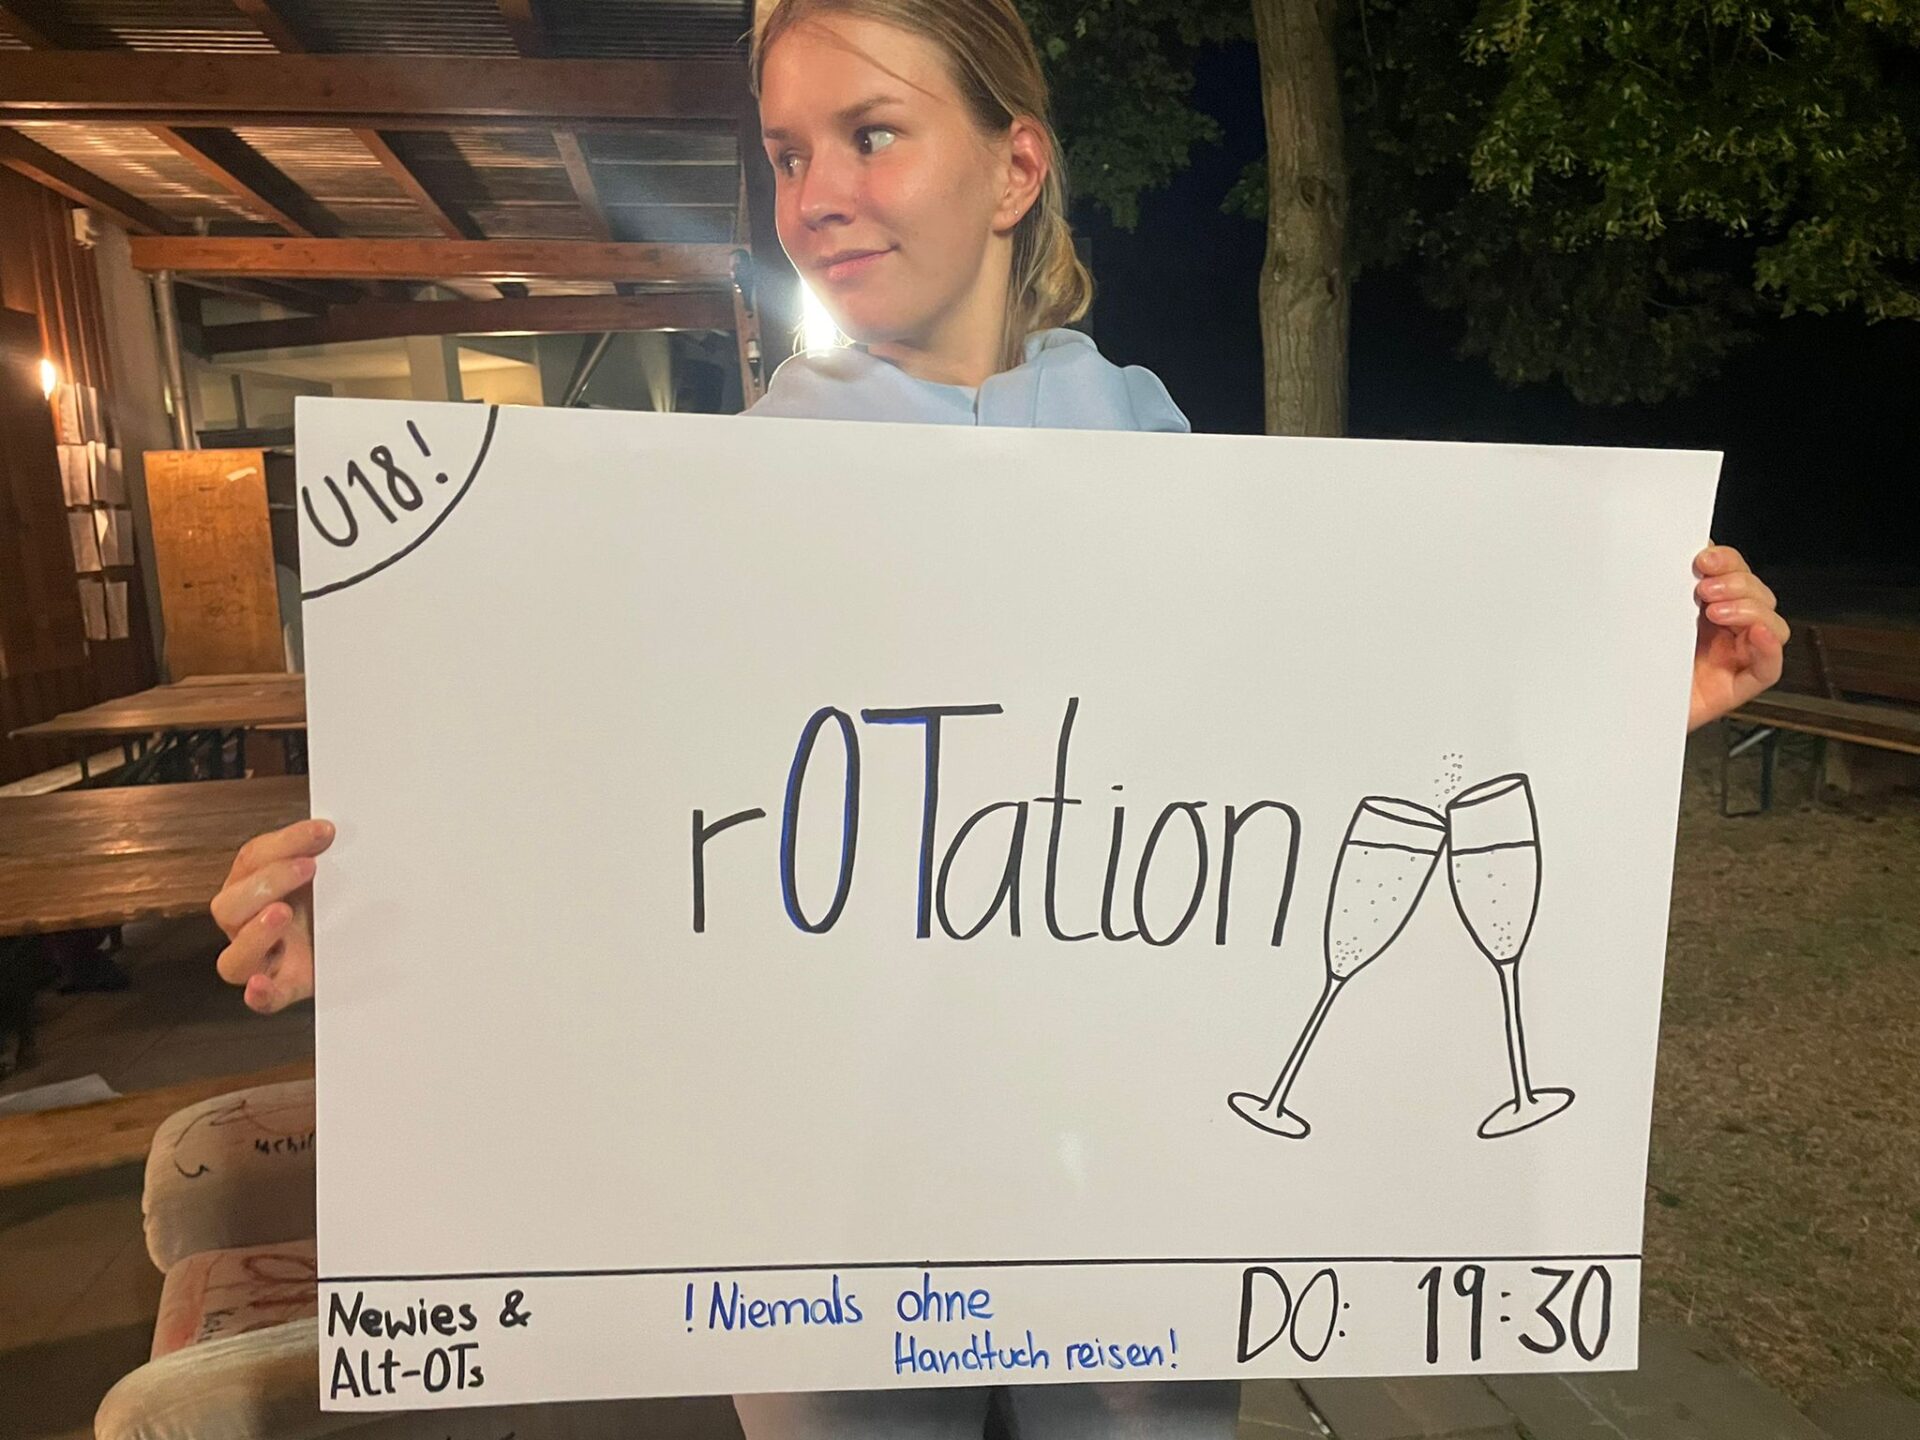 U18!
rOTation
Newies &
Alt-OTs
! Niemals ohne
Handtuch reisen!
DO: 19:30